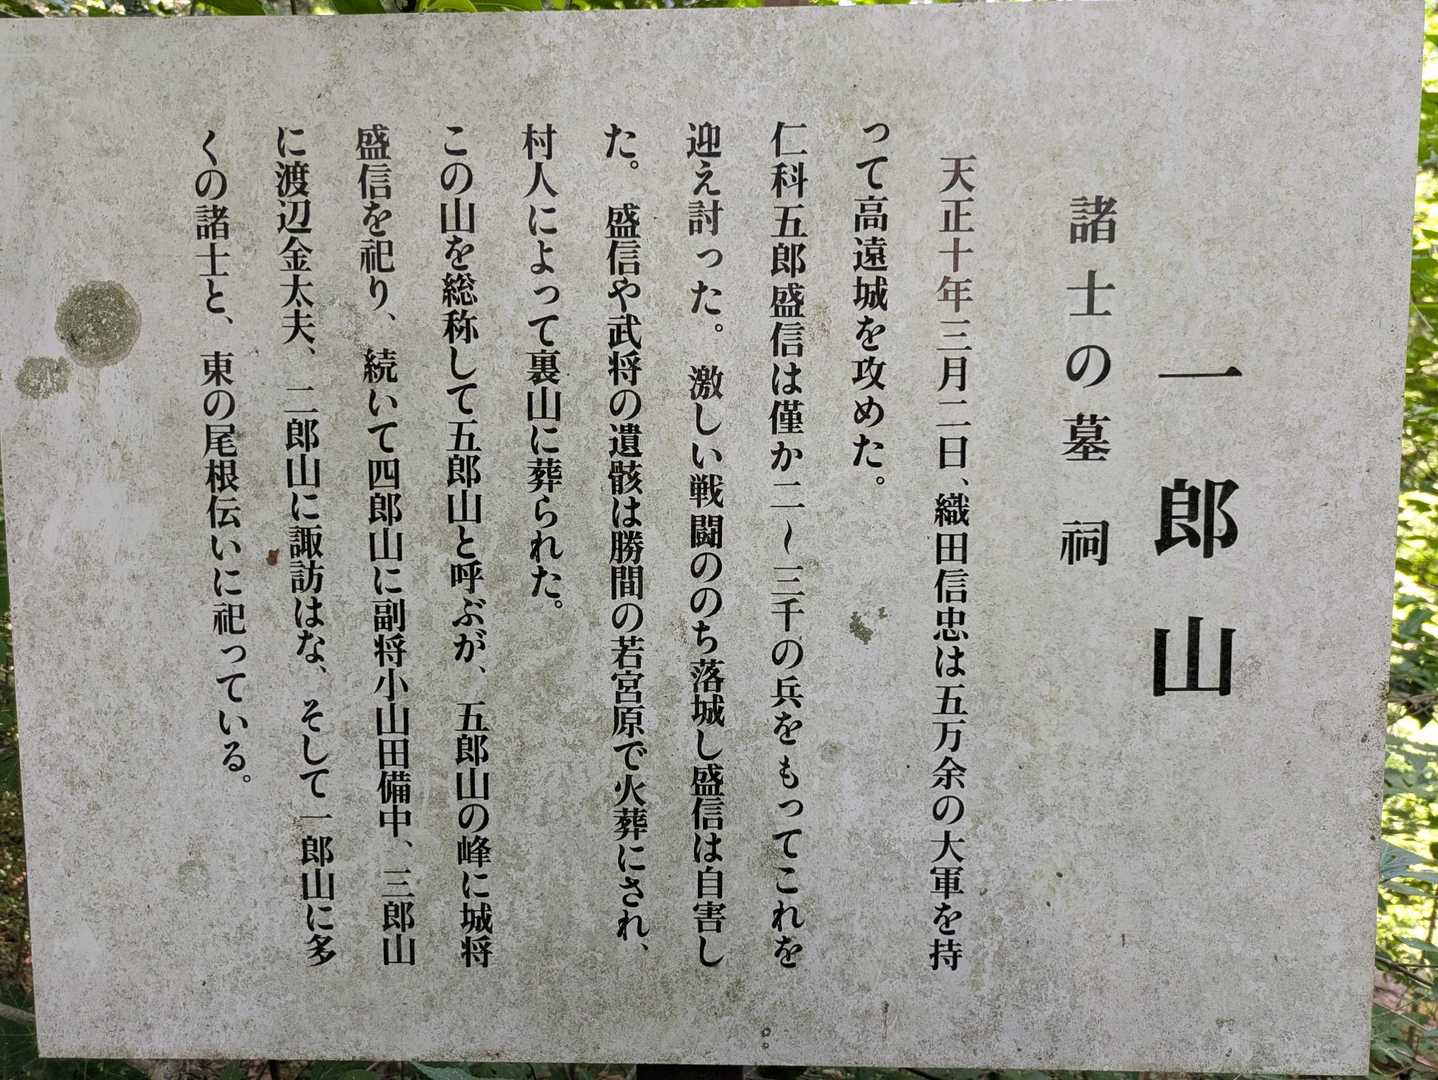 一郎山
諸士の墓 祠
天正十年三月二日、織田信忠は五万余の大軍を持
って高遠城を攻めた。
仁科五郎盛信は僅か二～三千の兵をもってこれを
迎え討った。激しい戦闘ののち落城し盛信は自害し
た。盛信や武将の遺骸は勝間の若宮原で火葬にされ、
村人によって裏山に葬られた。
この山を総称して五郎山と呼ぶが、五郎山の峰に城将
盛信を祀り、続いて四郎山に副将小山田備中、三郎山
に渡辺金太夫、二郎山に諏訪はな、そして一郎山に多
くの諸士と、東の尾根伝いに祀っている。